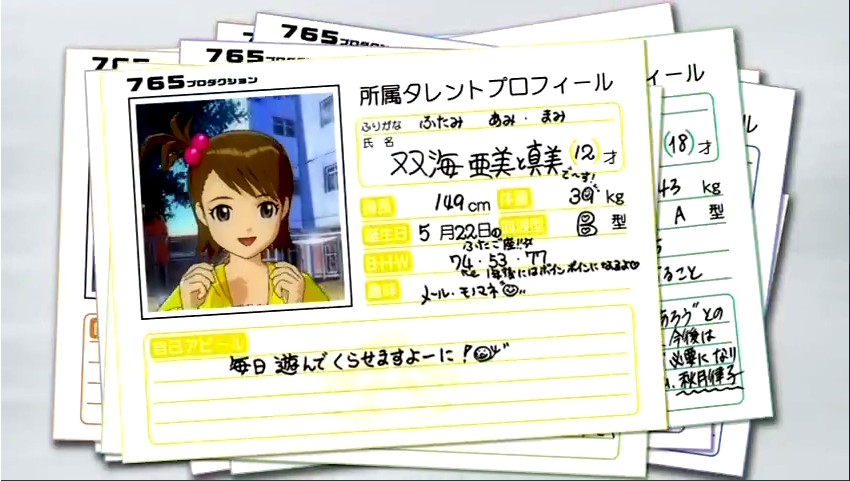 765プロダクション
765プロダクション
765プロダクション
765
所属タレントプロフィール
ふりがな ふたみ あみ・まみ
氏名 双海 亜美と真美 (12)才
で〜す!
身長 149cm 体重 39kg
誕生日 5月22日の 血液型 B型
ふたご座!!
BHW 74・53・77
趣味 メール・モノマネ
自己アピール
毎日 遊んでくらせますよーに!
ィール
(18)才
43 kg
A 型
ること
あろうとの
今後は
必要になり
秋月律子